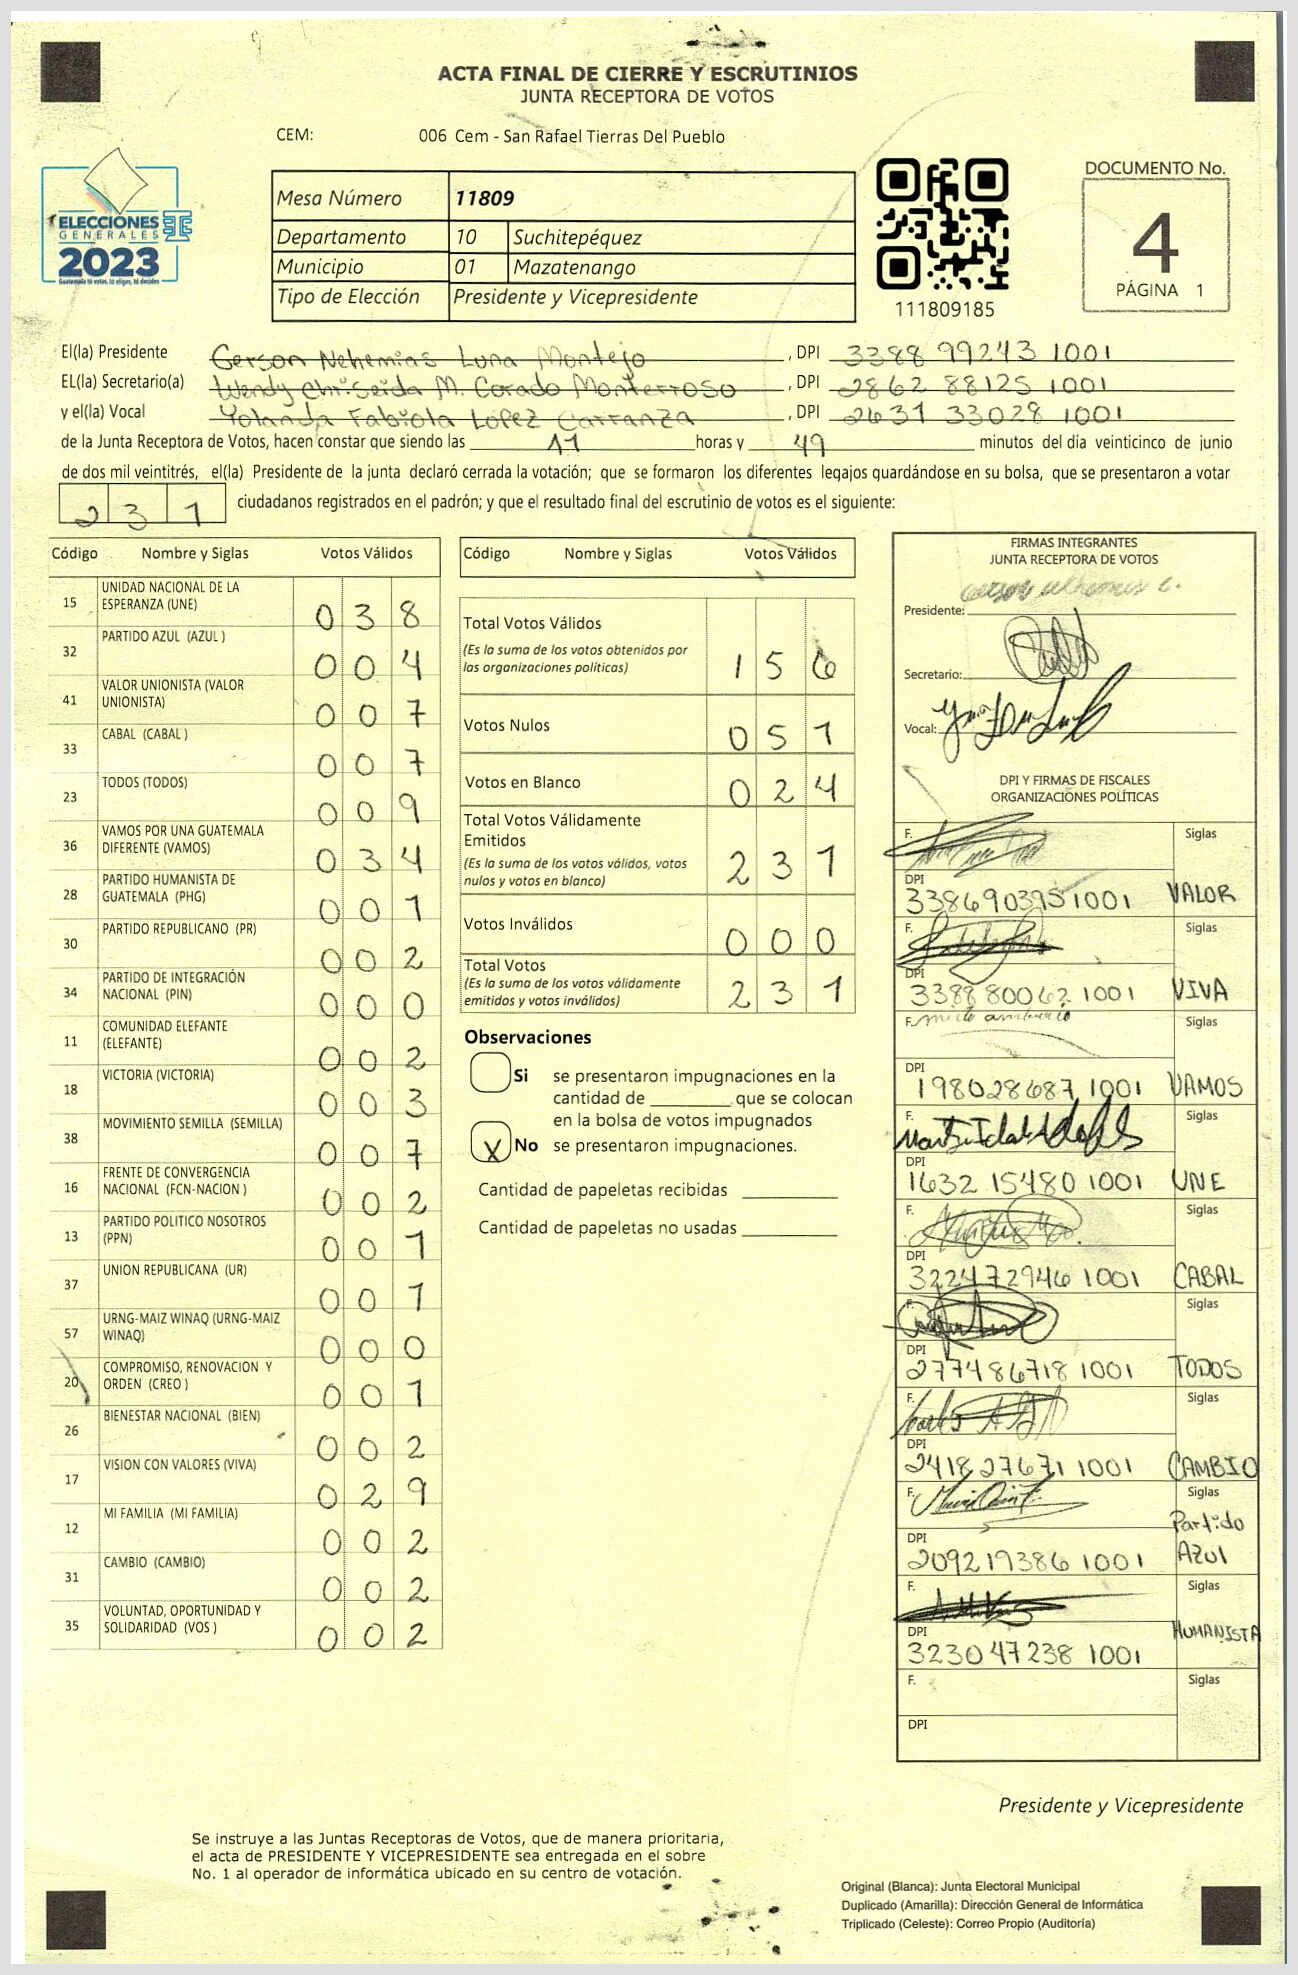 ACTA FINAL DE CIERRE Y ESCRUTINIOS
JUNTA RECEPTORA DE VOTOS
CEM: 006 Cem - San Rafael Tierras Del Pueblo
ELECCIONES
GENERALES
2023
Guatemala tú votas, tú eliges, tú decides
Mesa Número 11809
Departamento 10 Suchitepéquez
Municipio 01 Mazatenango
Tipo de Elección Presidente y Vicepresidente
111809185
DOCUMENTO No.
4
PÁGINA 1
El(la) Presidente Gerson Nehemias Luna Montejo , DPI 3388 99243 1001
EL(la) Secretario(a) Wendy Chriseida M. Corado Monterroso , DPI 2862 88125 1001
y el(la) Vocal Yolanda Fabiola López Carranza , DPI 2631 33028 1001
de la Junta Receptora de Votos, hacen constar que siendo las horas y 49 minutos del día veinticinco de junio
de dos mil veintitrés, el(la) Presidente de la junta declaró cerrada la votación; que se formaron los diferentes legajos guardándose en su bolsa, que se presentaron a votar
231 ciudadanos registrados en el padrón; y que el resultado final del escrutinio de votos es el siguiente:
Código Nombre y Siglas Votos Válidos
15 UNIDAD NACIONAL DE LA ESPERANZA (UNE) 038
32 PARTIDO AZUL (AZUL ) 004
41 VALOR UNIONISTA (VALOR UNIONISTA) 007
33 CABAL (CABAL ) 007
23 TODOS (TODOS) 009
36 VAMOS POR UNA GUATEMALA DIFERENTE (VAMOS) 034
28 PARTIDO HUMANISTA DE GUATEMALA (PHG) 001
30 PARTIDO REPUBLICANO (PR) 002
34 PARTIDO DE INTEGRACIÓN NACIONAL (PIN) 000
11 COMUNIDAD ELEFANTE (ELEFANTE) 002
18 VICTORIA (VICTORIA) 003
38 MOVIMIENTO SEMILLA (SEMILLA) 007
16 FRENTE DE CONVERGENCIA NACIONAL (FCN-NACION ) 002
13 PARTIDO POLITICO NOSOTROS (PPN) 001
37 UNION REPUBLICANA (UR) 001
57 URNG-MAIZ WINAQ (URNG-MAIZ WINAQ) 000
20 COMPROMISO, RENOVACION Y ORDEN (CREO ) 001
26 BIENESTAR NACIONAL (BIEN) 002
17 VISION CON VALORES (VIVA) 029
12 MI FAMILIA (MI FAMILIA) 002
31 CAMBIO (CAMBIO) 002
35 VOLUNTAD, OPORTUNIDAD Y SOLIDARIDAD (VOS ) 002
Código Nombre y Siglas Votos Válidos
Total Votos Válidos 156
(Es la suma de los votos obtenidos por
las organizaciones políticas)
Votos Nulos 051
Votos en Blanco 024
Total Votos Válidamente
Emitidos 231
(Es la suma de los votos válidos, votos
nulos y votos en blanco)
Votos Inválidos 000
Total Votos 231
(Es la suma de los votos válidamente
emitidos y votos inválidos)
Observaciones
Si se presentaron impugnaciones en la
cantidad de ________ que se colocan
en la bolsa de votos impugnados
X No se presentaron impugnaciones.
Cantidad de papeletas recibidas
Cantidad de papeletas no usadas
FIRMAS INTEGRANTES
JUNTA RECEPTORA DE VOTOS
Presidente:
Secretario:
Vocal:
DPI Y FIRMAS DE FISCALES
ORGANIZACIONES POLÍTICAS
F. Siglas
DPI 338690395 1001 VALOR
F. Siglas
DPI 3388 80062 1001 VIVA
F. Siglas
DPI 198028687 1001 VAMOS
F. Siglas
DPI 1632 15480 1001 UNE
F. Siglas
DPI 322472946 1001 CABAL
F. Siglas
DPI 277486718 1001 TODOS
F. Siglas
DPI 2418 27671 1001 CAMBIO
F. Siglas
DPI 209219386 1001 Partido Azul
F. Siglas
DPI 3230 47238 1001 HUMANISTA
F. Siglas
DPI
Presidente y Vicepresidente
Se instruye a las Juntas Receptoras de Votos, que de manera prioritaria,
el acta de PRESIDENTE Y VICEPRESIDENTE sea entregada en el sobre
No. 1 al operador de informática ubicado en su centro de votación.
Original (Blanca): Junta Electoral Municipal
Duplicado (Amarilla): Dirección General de Informática
Triplicado (Celeste): Correo Propio (Auditoría)